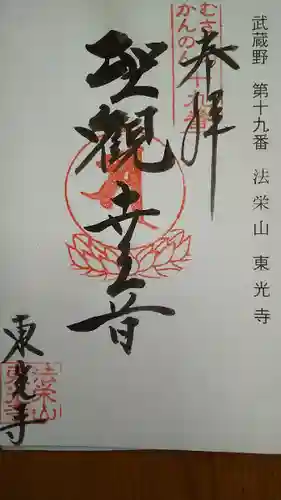 武蔵野 第十九番 法栄山 東光寺
奉拝
むさ
かんのん
十九番
聖観世音
東光寺
法栄山
東光寺